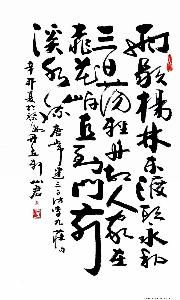 雨歇楊林東渡頭永和
三日蕩輕舟故人家在
桃花岸直到門前
溪水流 唐常建三日尋李九莊